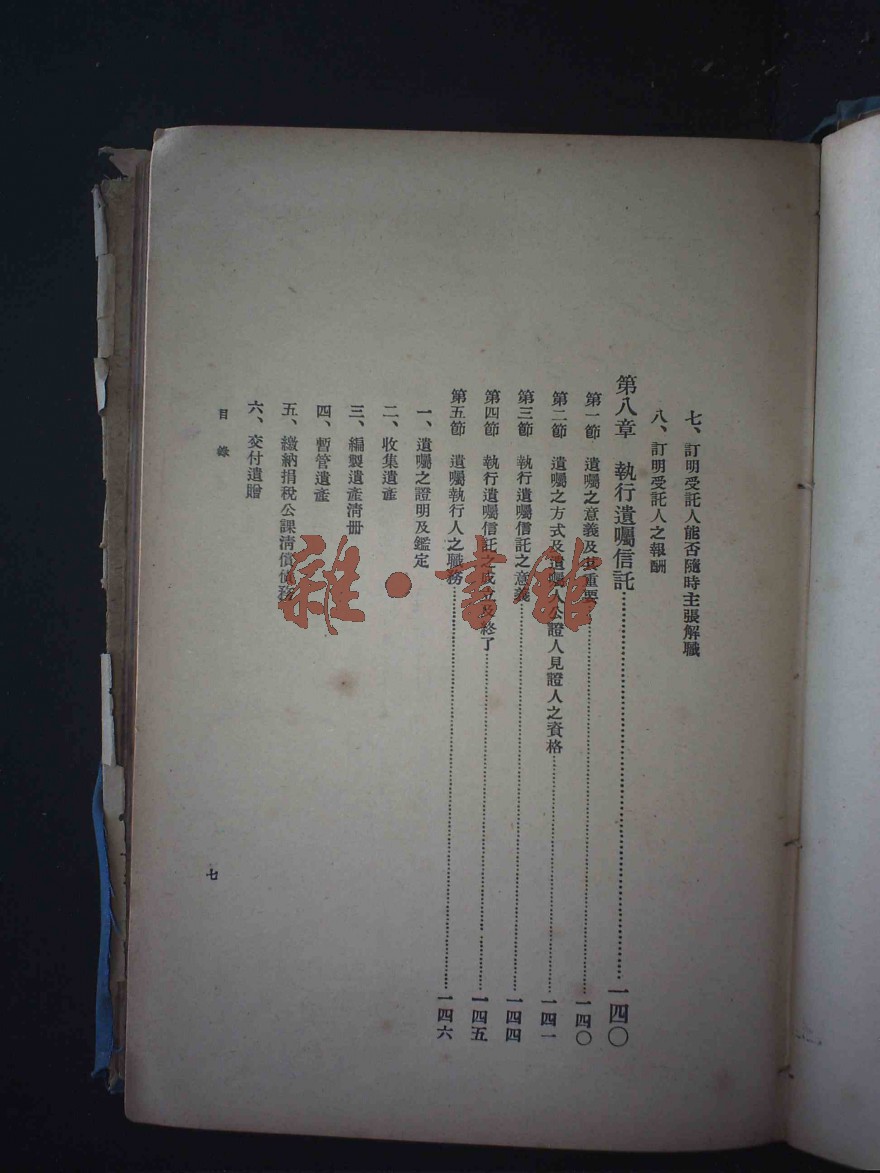 七、訂明受託人能否隨時主張解職
八、訂明受託人之報酬
第八章　執行遺囑信託……一四〇
第一節　遺囑之意義及其重要……一四〇
第二節　遺囑之方式及遺囑人公證人見證人之資格……一四一
第三節　執行遺囑信託之意義……一四四
第四節　執行遺囑信託之成立及終了……一四五
第五節　遺囑執行人之職務……一四六
一、遺囑之證明及鑑定
二、收集遺產
三、編製遺產清冊
四、暫管遺產
五、繳納捐稅公課清償債務
六、交付遺贈
目錄
七
雜·書館